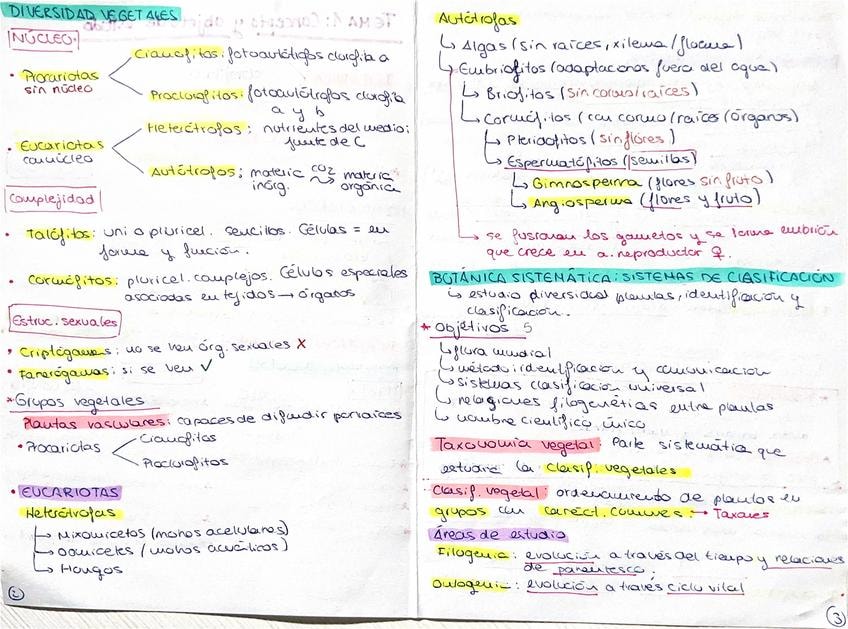 DIVERSIDAD VEGETALES
NÚCLEO:
Cianofitos: fotoautótrofos clorofila a
• Procariotas
sin núcleo
Proclorofitos: fotoautótrofos clorofila
a y b
Heterótrofos: nutrientes del medio:
fuente de C
• Eucariotas
con núcleo
Autótrofos: materia CO2 materia
inorg. orgánica
Complejidad
• Talófitos: uni o pluricel. sencillos. Células = en
forma y función.
• Cormófitos: pluricel. complejos. Células especiales
asociadas en tejidos → órganos
Estruc. sexuales
• Criptógamas: no se ven órg. sexuales X
• Fanerógamas: si se ven ✓
* Grupos vegetales
Plantas vasculares: capaces de difundir por raíces
• Procariotas
Cianofitos
Proclorofitos
• EUCARIOTAS
Heterótrofas
↳ Mixomicetos (mohos acelulares)
↳ Oomicetes (mohos acuáticos)
↳ Hongos
Autótrofas
↳ Algas (sin raíces, xilema/floema)
↳ Embriofitos (adaptaciones fuera del agua)
↳ Briofitos (sin cormo/raíces)
↳ Cormófitos (con cormo/raíces/órganos)
↳ Pteridofitos (sin flores)
↳ Espermatófitos (semillas)
↳ Gimnosperma (flores sin fruto)
↳ Angiosperma (flores y fruto)
→ se fusionan los gametos y se forma embrión
que crece en a. reproductor ♀.
BOTÁNICA SISTEMÁTICA: SISTEMAS DE CLASIFICACIÓN
↳ estudio diversidad plantas, identificación y
clasificación.
* Objetivos 5
↳ flora mundial
↳ método: identificación y comunicación
↳ sistemas clasificación universal
↳ relaciones filogenéticas entre plantas
↳ nombre científico único
Taxonomía vegetal: Parte sistemática que
estudia la clasif. vegetales
Clasif. vegetal: ordenamiento de plantas en
grupos con caráct. comunes. → Taxones
Áreas de estudio
Filogenia: evolución a través del tiempo y relaciones
de parentesco.
Ontogenia: evolución a través ciclo vital
3